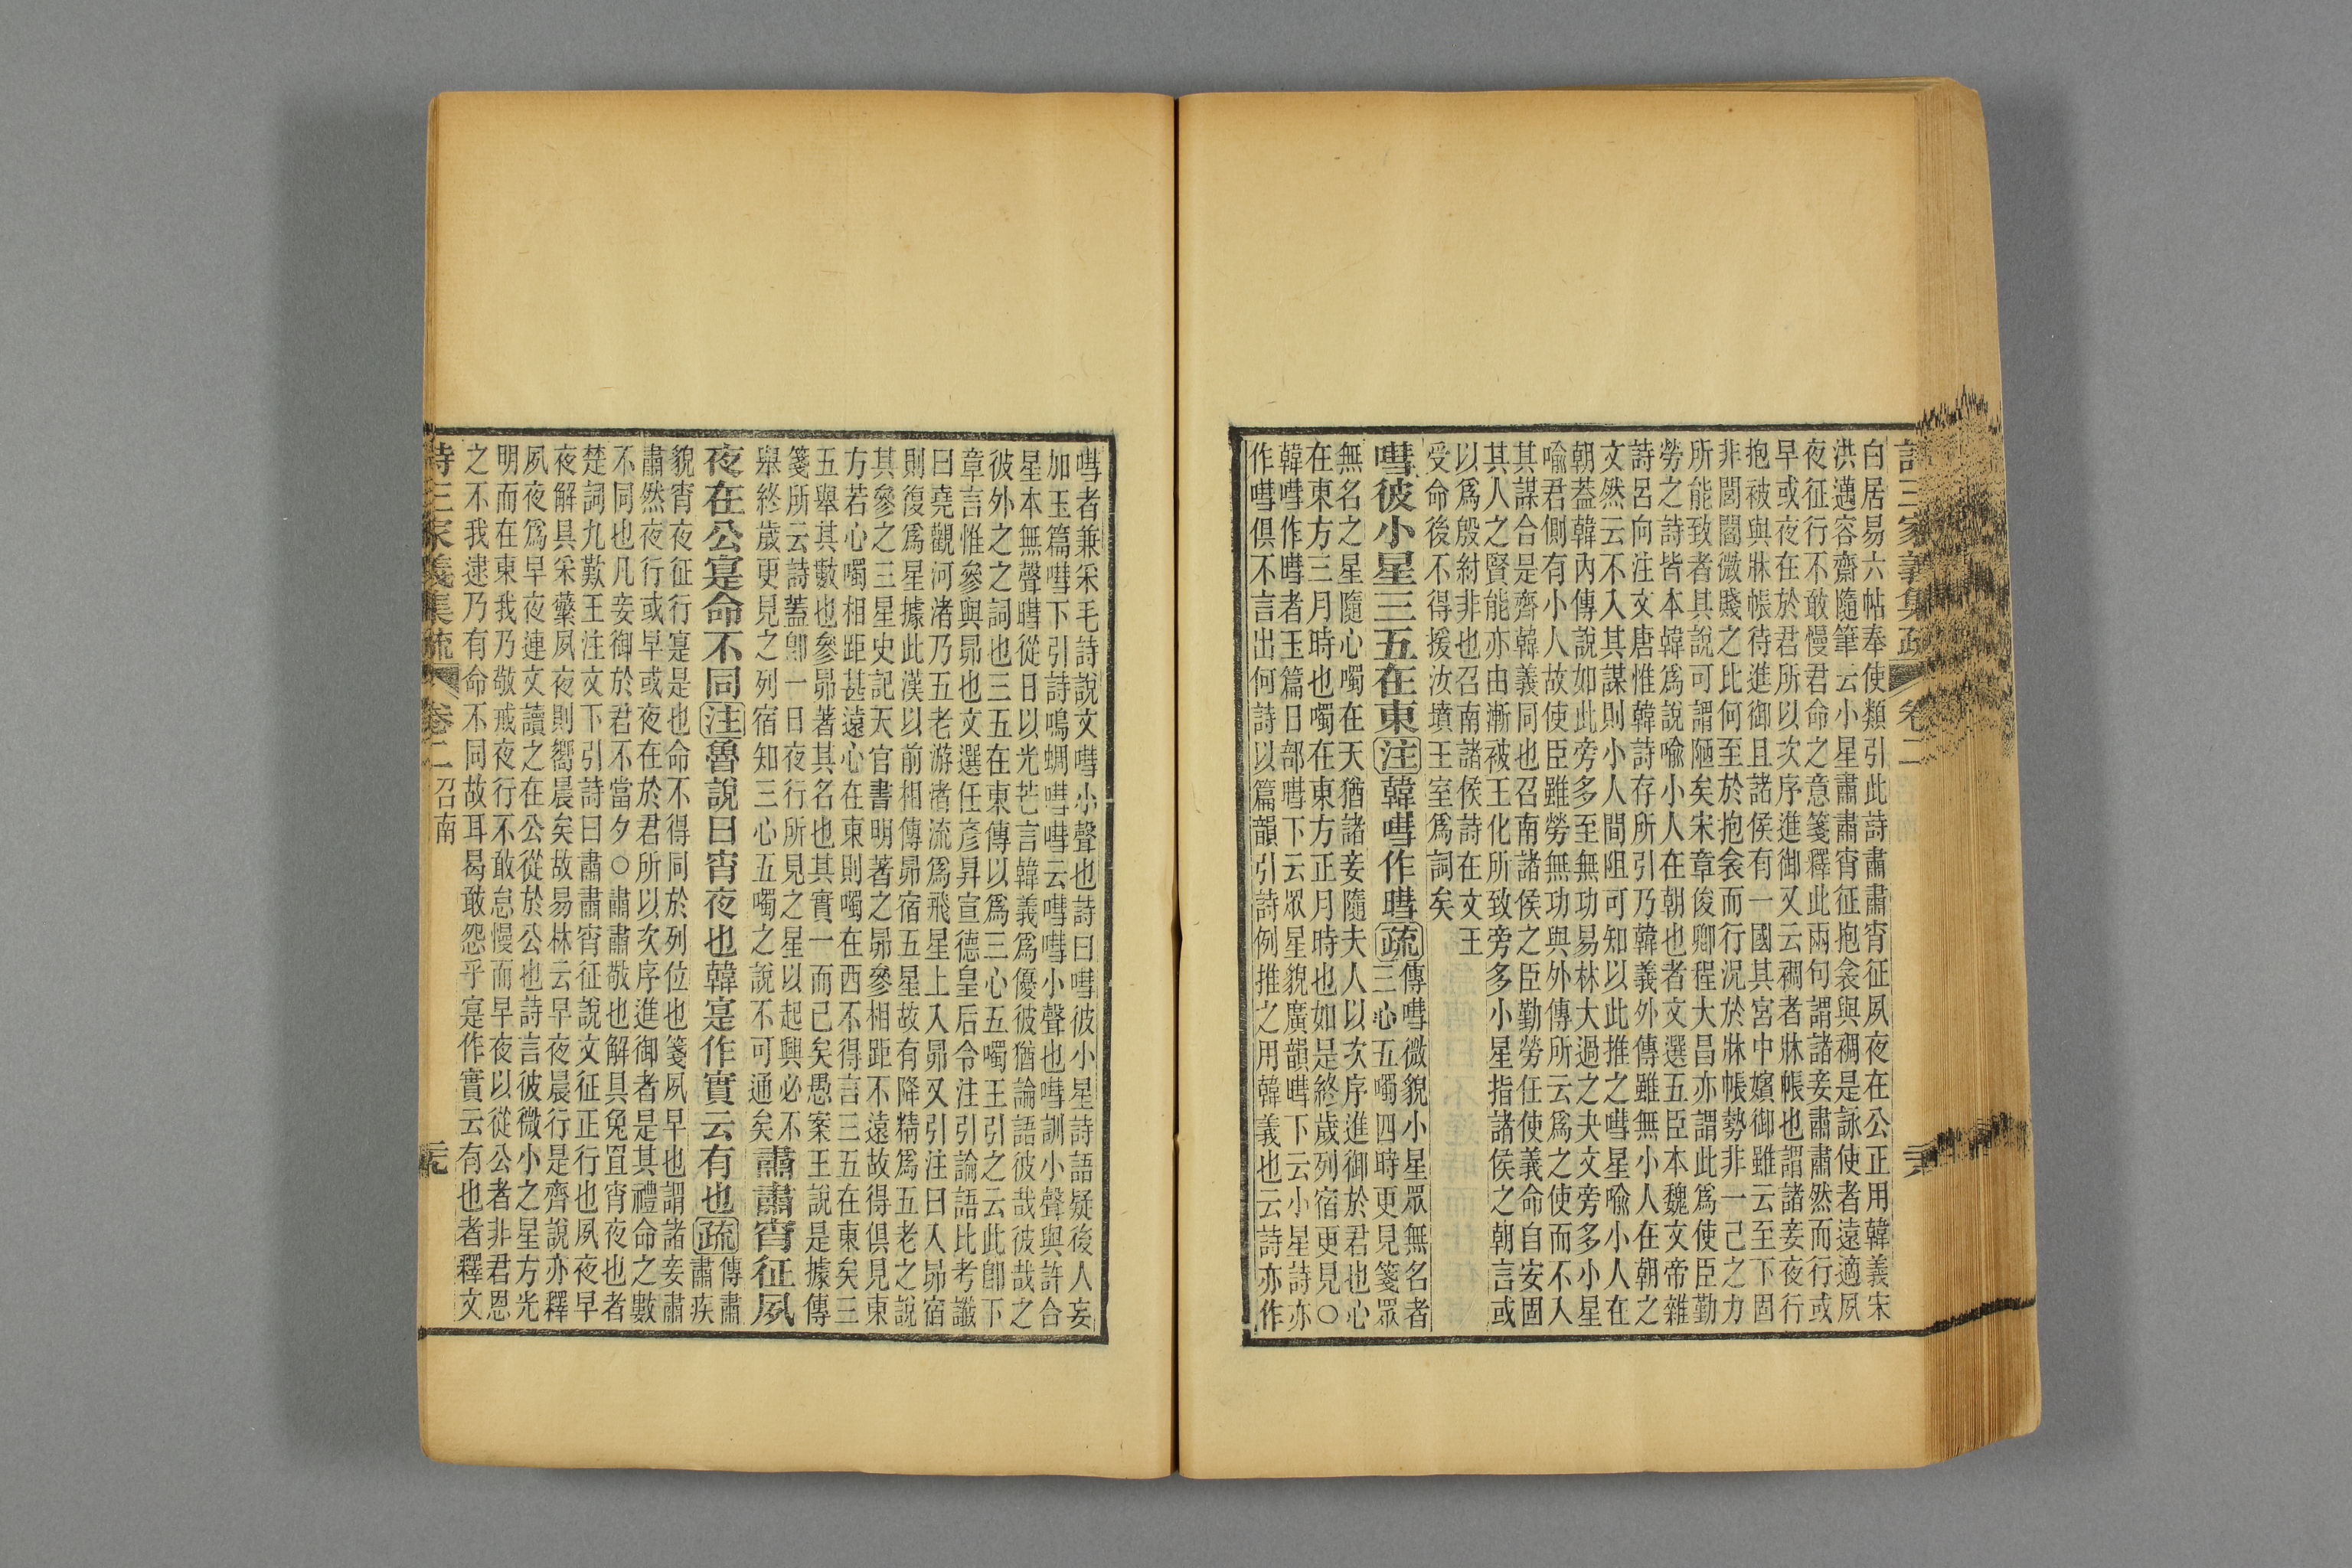 詩三家義集疏 卷二
白居易六帖奉使類引此詩肅肅宵征夙夜在公正用韓義宋
洪邁容齋隨筆云小星肅肅宵征抱衾與裯是詠使者遠適夙
夜征行不敢慢君命之意箋釋此兩句謂諸妾肅肅然而行或
早或夜在於君所以次序進御又云裯者牀帳也謂諸妾夜行
抱被與牀帳待進御且諸侯有一國其宮中嬪御雖云至下固
非閭閻微賤之比何至於抱衾而行況於牀帳勢非一己之力
所能致者其說可謂陋矣宋章俊卿程大昌亦謂此爲使臣勤
勞之詩皆本韓爲說喻小人在朝也者文選五臣本魏文帝雜
詩呂向注文唐惟韓詩存所引乃韓義外傳雖無小人在朝之
文然云不入其謀則小人間阻可知以此推之嘒星喻小人在
朝葢韓內傳說如此旁多至無功易林大過之夬文旁多小星
喻君側有小人故使臣雖勞無功與外傳所云爲之使而不入
其謀合是齊韓義同也召南諸侯之臣勤勞任使義命自安固
其人之賢能亦由漸被王化所致旁多小星指諸侯之朝言或
以爲殷紂非也召南諸侯詩在文王
受命後不得援汝墳王室爲詞矣
嘒彼小星三五在東注韓嘒作暳疏傳嘒微貌小星眾無名者
三心五噣四時更見箋眾
無名之星隨心噣在天猶諸妾隨夫人以次序進御於君也心
在東方三月時也噣在東方正月時也如是終歲列宿更見○
韓嘒作暳者玉篇日部暳下云眾星貌廣韻暳下云小星詩亦
作嘒俱不言出何詩以篇韻引詩例推之用韓義也云詩亦作
嘒者兼采毛詩說文嘒小聲也詩曰嘒彼小星詩語疑後人妄
加玉篇嘒下引詩鳴蜩嘒嘒云嘒嘒小聲也嘒訓小聲與許合
星本無聲暳從日以光芒言韓義爲優彼猶論語彼哉彼哉之
彼外之之詞也三五在東傳以爲三心五噣王引之云此卽下
章言惟參與昴也文選任彥昇宣德皇后令注引論語比考讖
曰堯觀河渚乃五老游渚流爲飛星上入昴又引注曰入昴宿
則復爲星據此漢以前相傳昴宿五星故有降精爲五老之說
其參之三星史記天官書明著之昴參相距不遠故得俱見東
方若心噣相距甚遠心在東則噣在西不得言三五在東矣三
五舉其數也參昴著其名也其實一而已矣愚案王說是據傳
箋所云詩葢卽一日夜行所見之星以起興必不
舉終歲更見之列宿知三心五噣之說不可通矣肅肅宵征夙
夜在公寔命不同注魯說曰宵夜也韓寔作實云有也疏傳肅
肅疾
貌宵夜征行寔是也命不得同於列位也箋夙早也謂諸妾肅
肅然夜行或早或夜在於君所以次序進御者是其禮命之數
不同也凡妾御於君不當夕○肅肅敬也解具兔罝宵夜也者
楚詞九歎王注文下引詩曰肅肅宵征說文征正行也夙夜早
夜解具采蘩夙夜則嚮晨矣故易林云早夜晨行是齊說亦釋
夙夜爲早夜連文讀之在公從於公也詩言彼微小之星方光
明而在東我乃敬戒夜行不敢怠慢而早夜以從公者非君恩
之不我逮乃有命不同故耳曷敢怨乎寔作實云有也者釋文
詩三家義集疏 卷二 召南 元